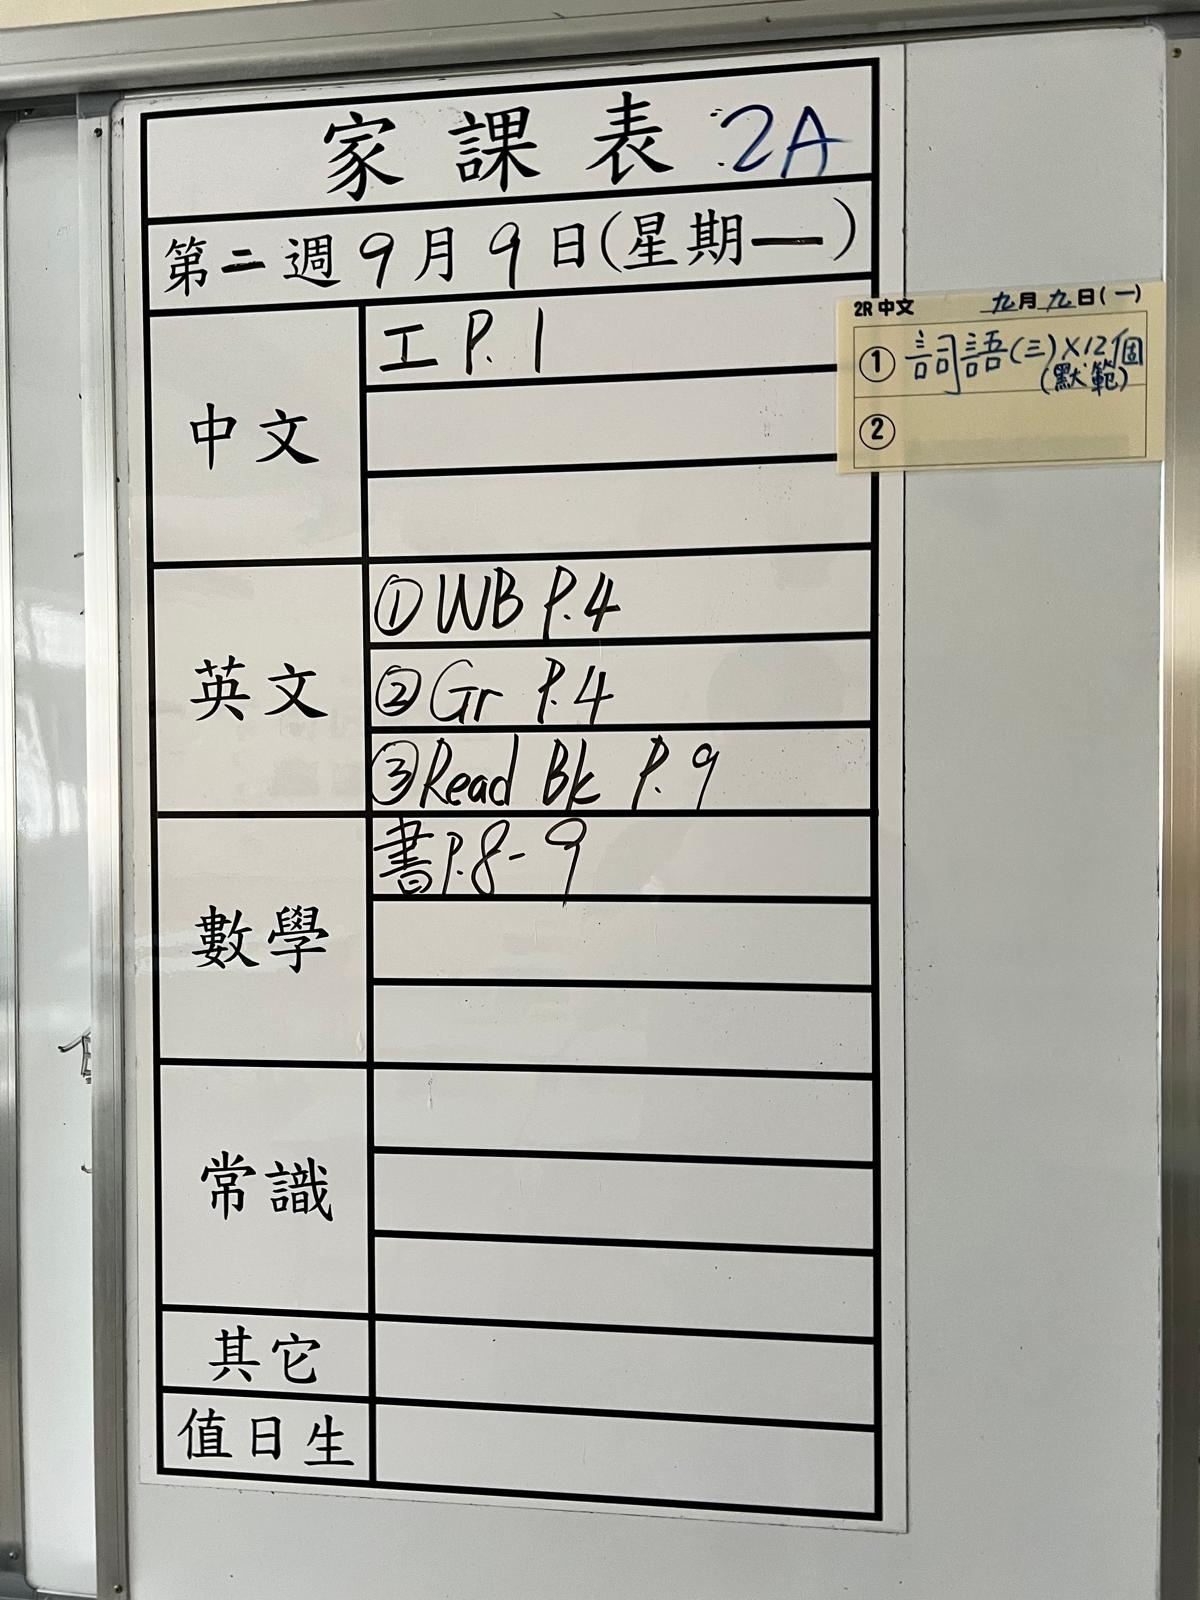 家課表 2A
第二週9月9日(星期一)
中文
工 P. 1
2R 中文 九月九日(一)
① 詞語(三)×12個
(默範)
②
英文
① WB P.4
② Gr P.4
③ Read Bk P. 9
數學
書P.8-9
常識
其它
值日生